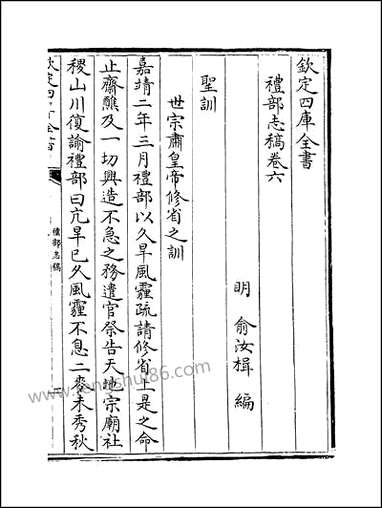 欽定四庫全書
禮部志稿卷六
明 俞汝楫 編
聖訓
世宗肅皇帝修省之訓
嘉靖二年三月禮部以久旱風霾疏請修省上是之命
止齋醮及一切興造不急之務遣官祭告天地宗廟社
稷山川復諭禮部曰亢旱已久風霾不息二麥未秀秋
欽定四庫全書
禮部志稿